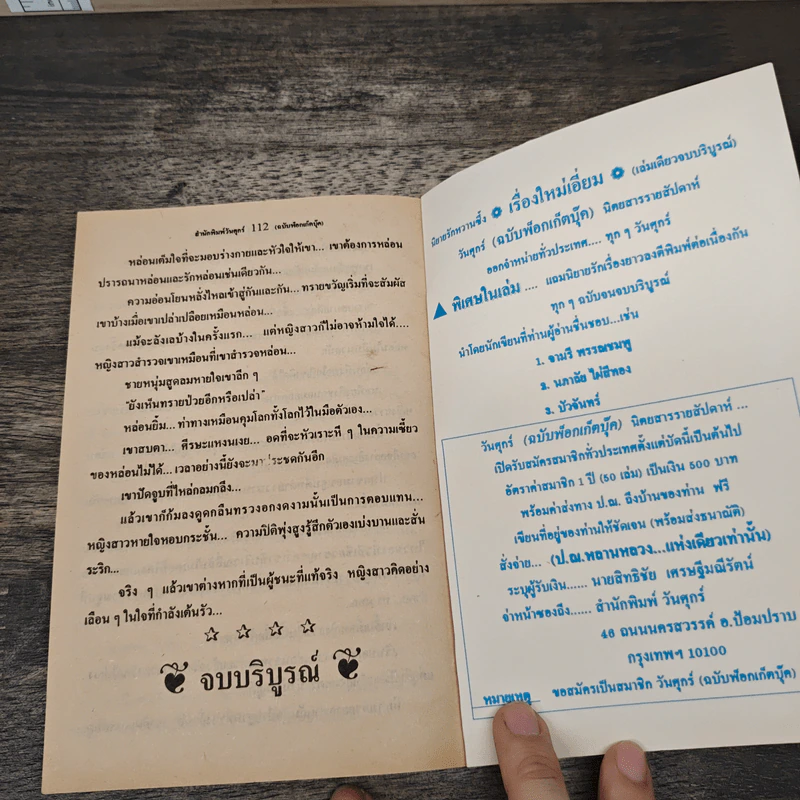 สำนักพิมพ์วันศุกร์ 112 (ฉบับพ็อกเก็ตบุ๊ค)
หล่อนเต็มใจที่จะมอบร่างกายและหัวใจให้เขา... เขาต้องการหล่อน
ปรารถนาหล่อนและรักหล่อนเช่นเดียวกัน...
ความอ่อนโยนหลั่งไหลเข้าสู่กันและกัน... ทรายขวัญเริ่มที่จะสัมผัส
เขาบ้างเมื่อเขาเปล่าเปลือยเหมือนหล่อน...
แม้จะลังเลบ้างในครั้งแรก... แต่หญิงสาวก็ไม่อาจห้ามใจได้....
หญิงสาวสำรวจเขาเหมือนที่เขาสำรวจหล่อน...
ชายหนุ่มสูดลมหายใจเข้าลึก ๆ
"ยังเห็นทรายป่วยอีกหรือเปล่า"
หล่อนยิ้ม... ท่าทางเหมือนคุมโลกทั้งโลกไว้ในมือตัวเอง...
เขาสบตา... ศีรษะแหงนเงย... อดที่จะหัวเราะหึ ๆ ในความเซี้ยว
ของหล่อนไม่ได้... เวลาอย่างนี้ยังจะมาประชดกันอีก
เขาปัดจูบที่ไหล่กลมกลึง...
แล้วเขาก็ก้มลงดูดกลืนทรวงอกงดงามนั้นเป็นการตอบแทน...
หญิงสาวหายใจหอบกระชั้น... ความปิติพุ่งสูงรู้สึกตัวเองเบ่งบานและสั่น
ระริก...
จริง ๆ แล้วเขาต่างหากที่เป็นผู้ชนะที่แท้จริง หญิงสาวคิดอย่าง
เลือน ๆ ในใจที่กำลังเต้นรัว...
จบบริบูรณ์
นิยายรักหวานซึ้ง เรื่องใหม่เอี่ยม (เล่มเดียวจบบริบูรณ์)
วันศุกร์ (ฉบับพ็อกเก็ตบุ๊ค) นิตยสารรายสัปดาห์
ออกจำหน่ายทั่วประเทศ.... ทุก ๆ วันศุกร์
▲ พิเศษในเล่ม .... แถมนิยายรักเรื่องยาวลงตีพิมพ์ต่อเนื่องกัน
ทุก ๆ ฉบับจนจบบริบูรณ์
นำโดยนักเขียนที่ท่านผู้อ่านชื่นชอบ...เช่น
1. จามรี พรรณชมพู
2. นภาลัย ไผ่สีทอง
3. บัวจันทร์
วันศุกร์ (ฉบับพ็อกเก็ตบุ๊ค) นิตยสารรายสัปดาห์ ...
เปิดรับสมัครสมาชิกทั่วประเทศตั้งแต่บัดนี้เป็นต้นไป
อัตราค่าสมาชิก 1 ปี (50 เล่ม) เป็นเงิน 500 บาท
พร้อมค่าส่งทาง ป.ณ. ถึงบ้านของท่าน ฟรี
เขียนที่อยู่ของท่านให้ชัดเจน (พร้อมส่งธนาณัติ)
สั่งจ่าย... (ป.ณ.หลานหลวง...แห่งเดียวเท่านั้น)
ระบุผู้รับเงิน...... นายสิทธิชัย เศรษฐีมณีรัตน์
จ่าหน้าซองถึง...... สำนักพิมพ์ วันศุกร์
46 ถนนนครสวรรค์ อ.ป้อมปราบ
กรุงเทพฯ 10100
หมายเหตุ ขอสมัครเป็นสมาชิก วันศุกร์ (ฉบับพ็อกเก็ตบุ๊ค)